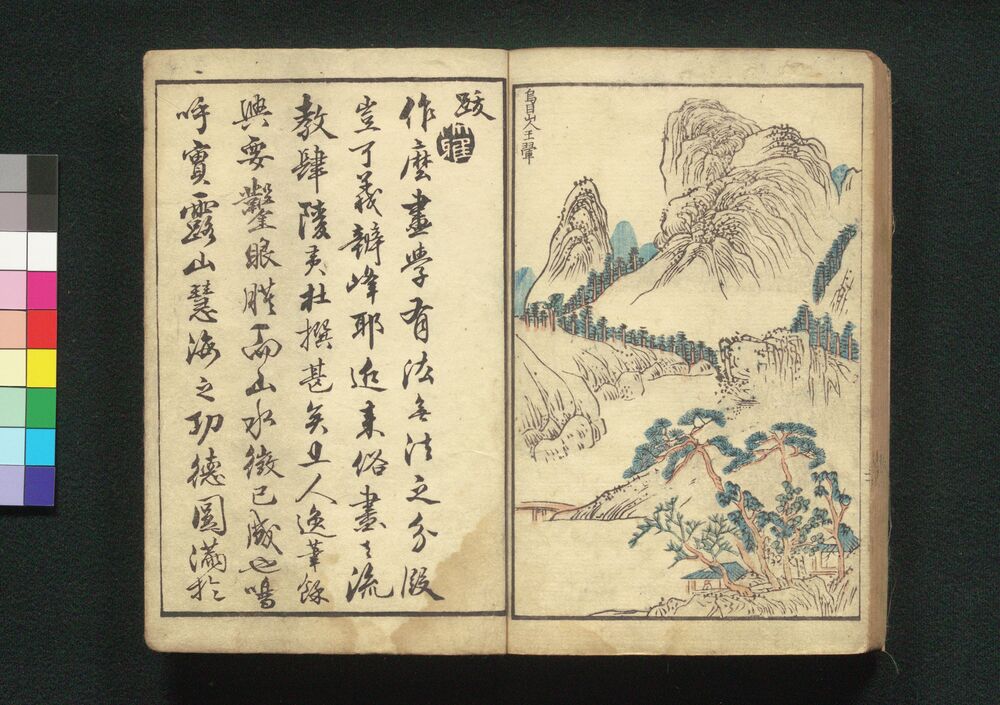 烏目山人王翬
跋
作麼畫學有法無法之分殷
豈了義辨峰耶近来俗畫之流
教肆陵夷杜撰甚矣且人逸筆餘
興要鑿眼膜而山水徴已成也嗚
呼實露山慧海之功德圓滿於